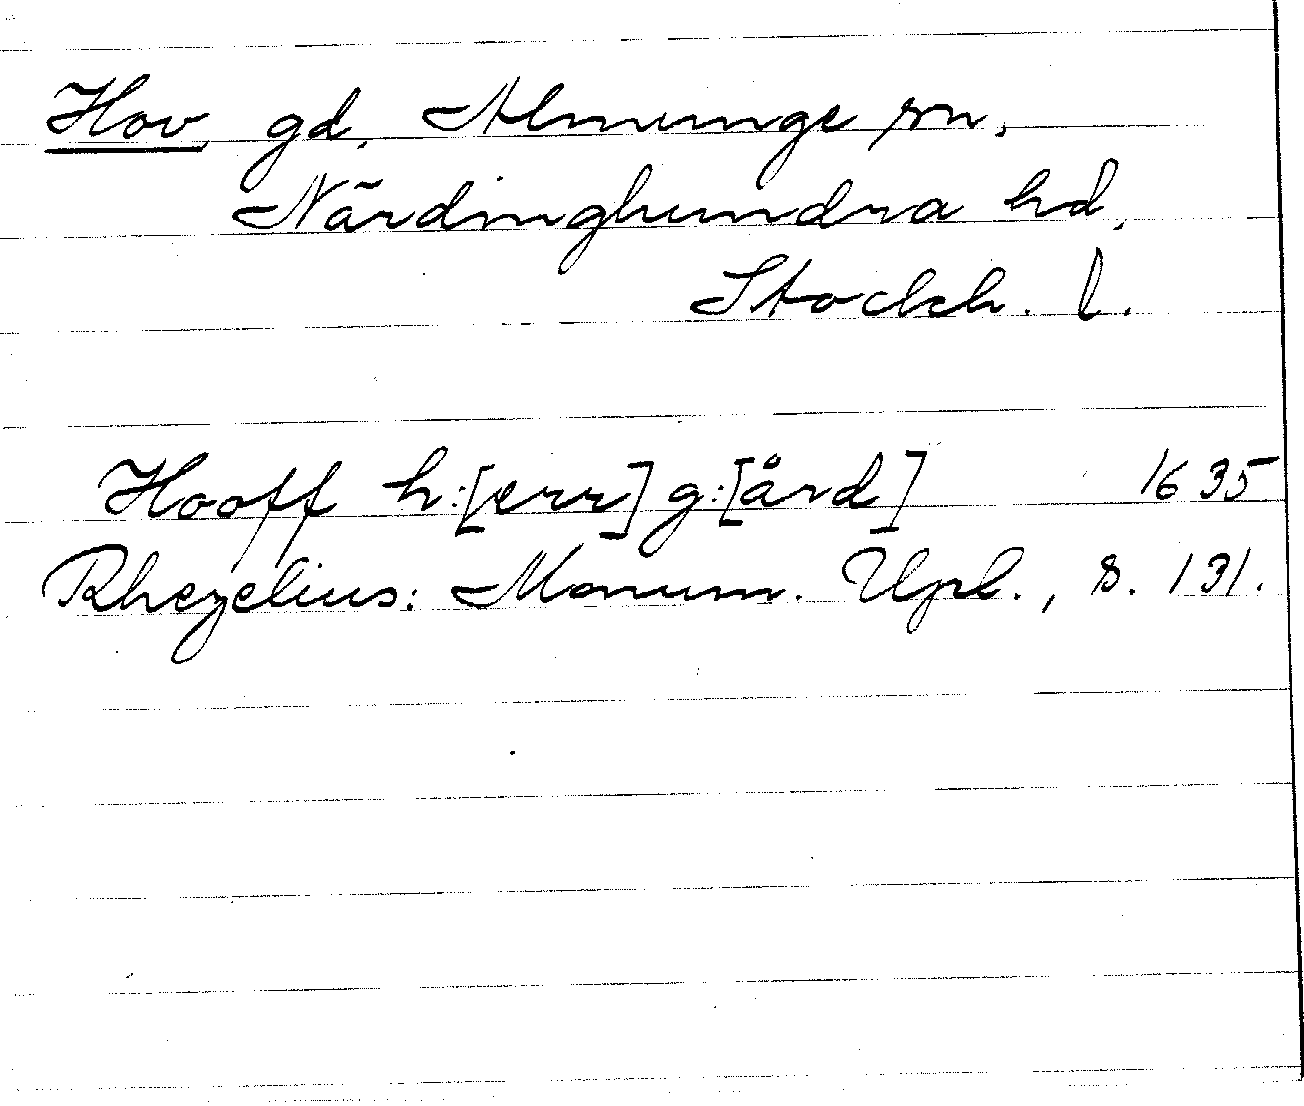 Hov, gd, Almunge sn,
Närdinghundra hd,
Stockh. l.
Hooff h:[err] g:[ård] 1635
Rhezelius: Monum. Upl., s. 131.